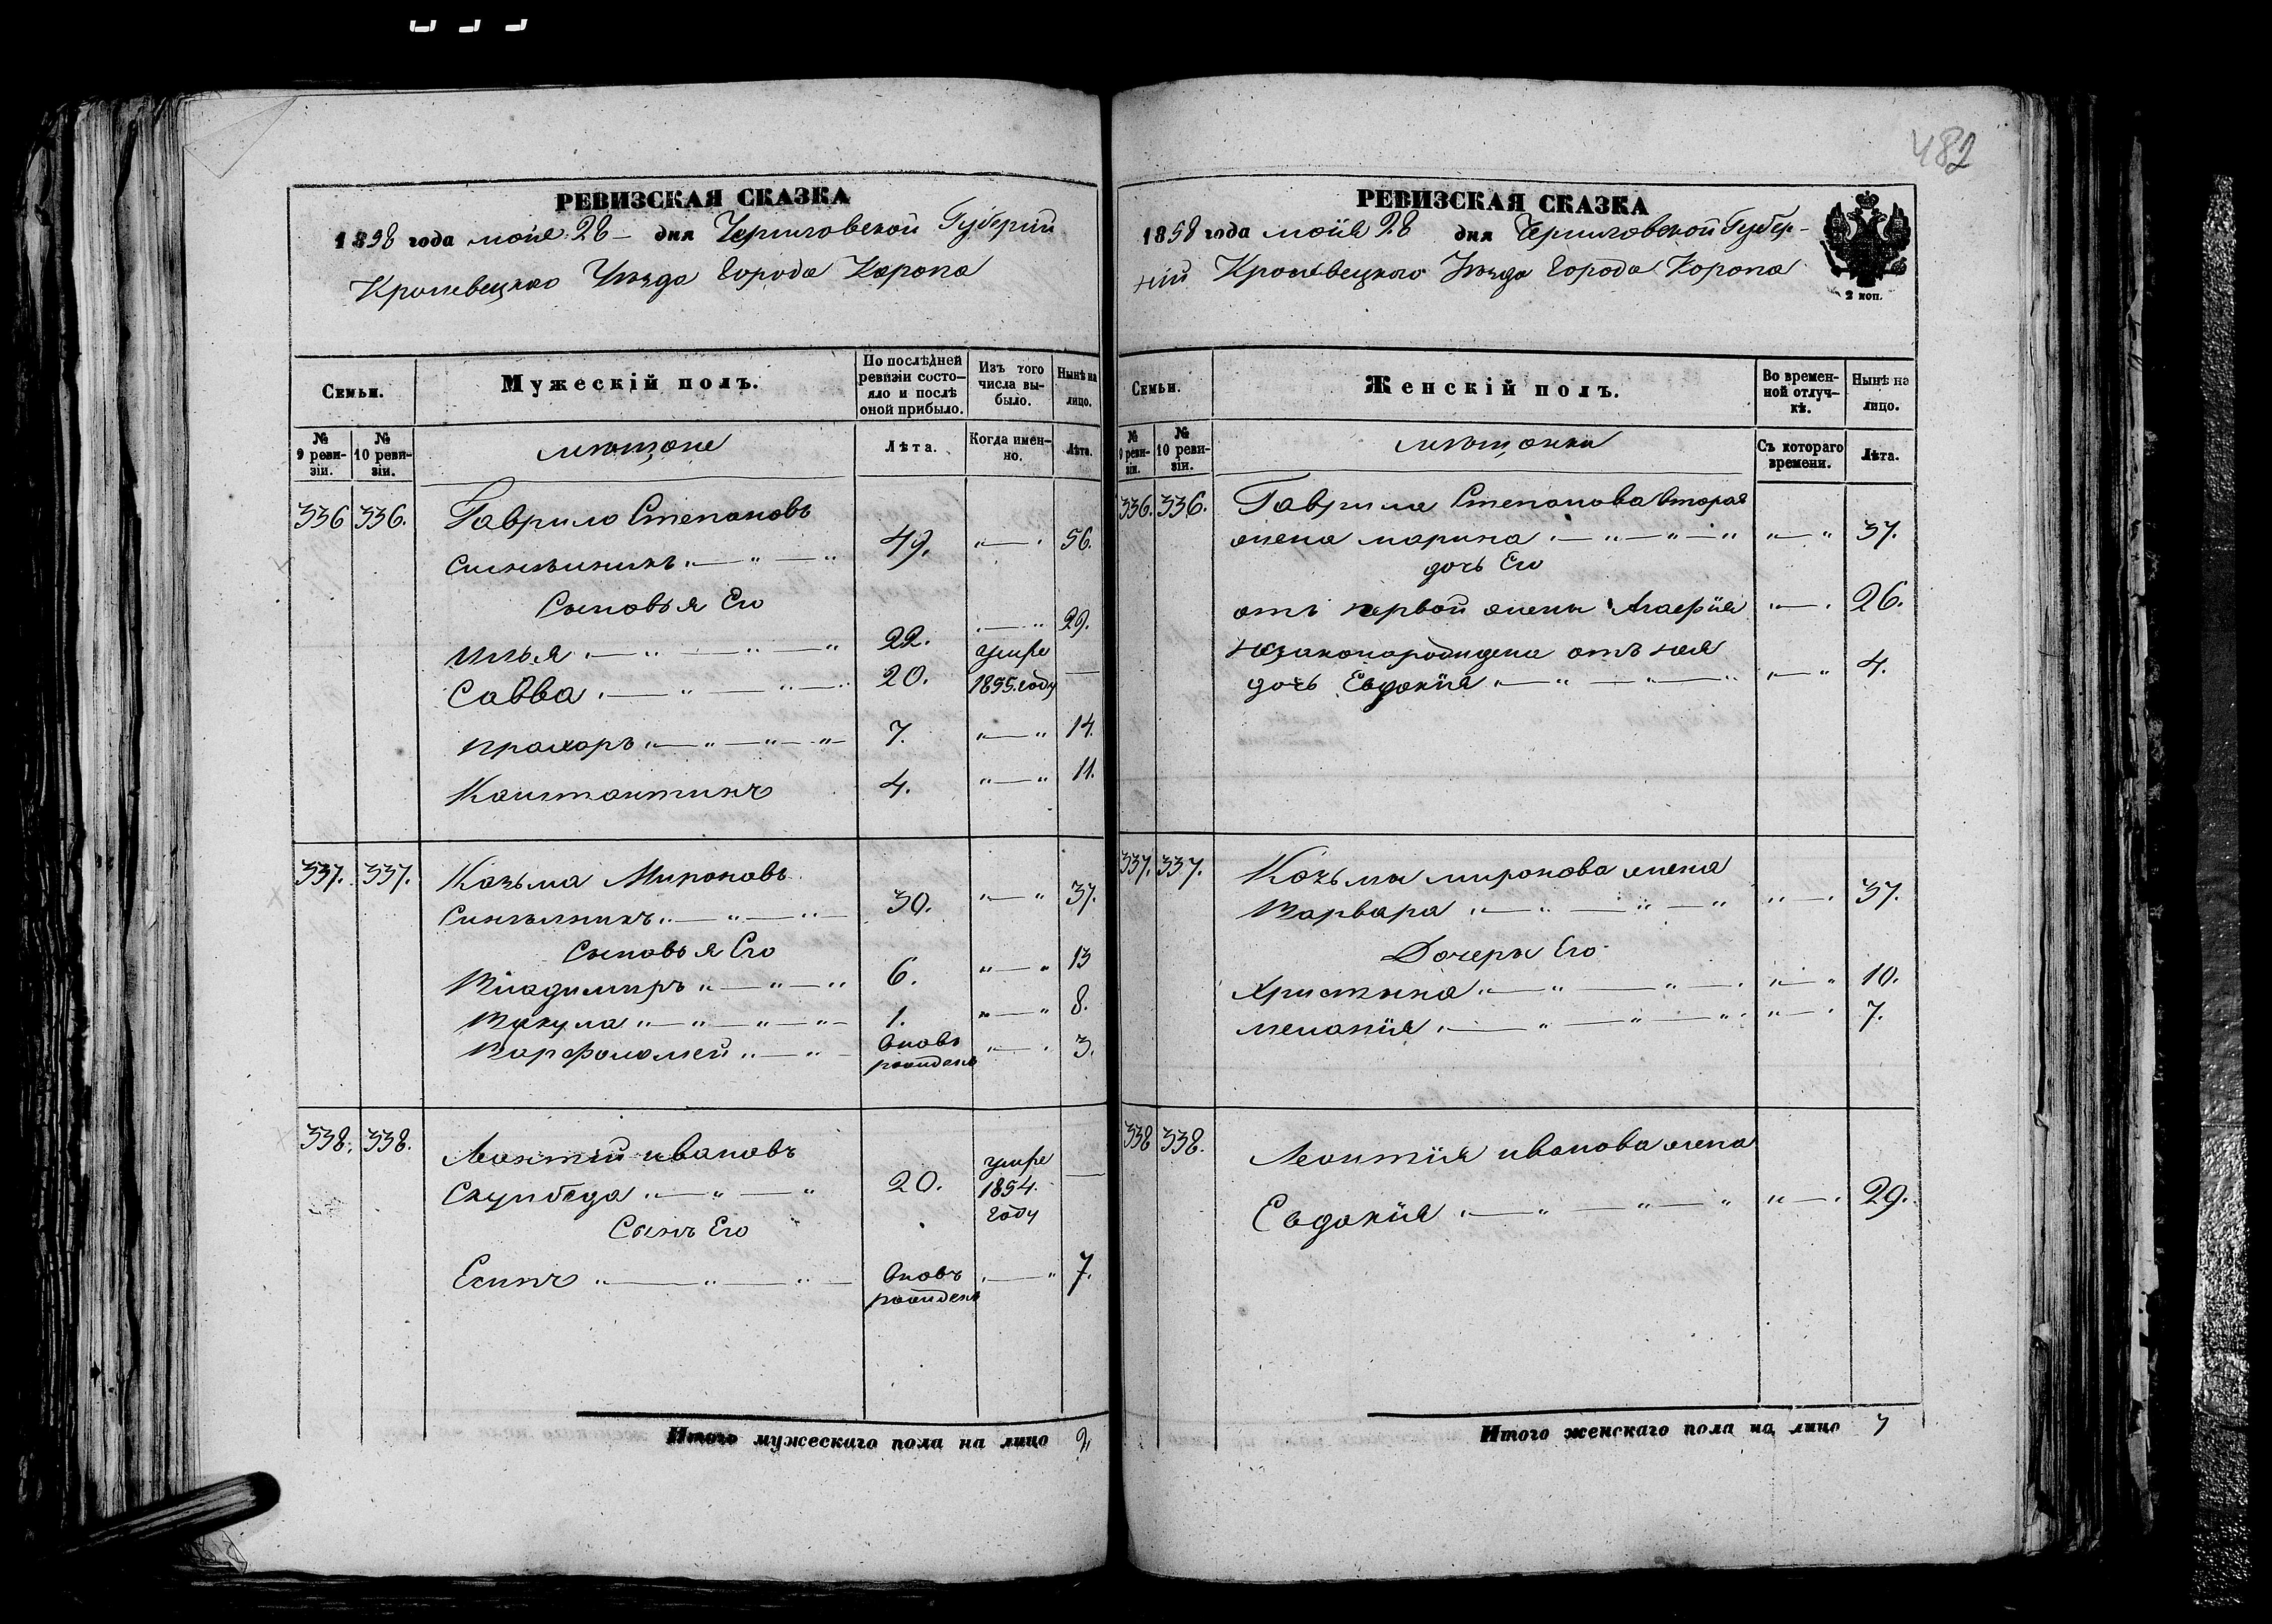 482
РЕВИЗСКАЯ СКАЗКА
1858 года мая 28 дня Черниговской Губернии
Кролевецкаго Уѣзда Города Коропа
Семьи.
Мужескій полъ.
По послѣдней ревизіи состояло и послѣ оной прибыло.
Изъ того числа выбыло.
Нынѣ на лицо.
№ 9 ревизіи.
№ 10 ревизіи.
мѣщане
Лѣта.
Когда именно.
Лѣта.
336 336. Гаврило Степановъ
49. 56.
Сыновья Его
Илья 22. 29.
Савва 20. умре 1855. году
Прохоръ 7. 14.
Константинъ 4. 11.
337. 337. Козьма Мироновъ
30. 37.
Сыновья Его
Владимиръ 6. 13
Вакула 1. 8.
Варфоломей вновь рожденъ 3.
338. 338. Леонтий ивановъ
Скупбеда 20. умре 1854. году
Сынъ Его
Есипъ вновь рожденъ 7.
Итого мужескаго пола на лицо
РЕВИЗСКАЯ СКАЗКА
1858 года мая 28 дня Черниговской Губер-
ніи Кролевецкаго Уѣзда Города Коропа
2 коп.
Семьи.
Женскій полъ.
Во временной отлучкѣ.
Нынѣ на лицо.
№ 9 ревизіи.
№ 10 ревизіи.
мѣщанки
Съ котораго времени.
Лѣта.
336. 336. Гаврила Степанова вторая
жена марина 37.
дочь Его
отъ первой жены Агафія 26.
незаконорождена отъ нея
дочь Евдокія 4.
337. 337. Козьмы миронова жена
Варвара 37.
Дочери Его
Христина 10.
меланія 7.
338 338. Леонтія иванова жена
Евдокія 29.
Итого женскаго пола на лицо 7